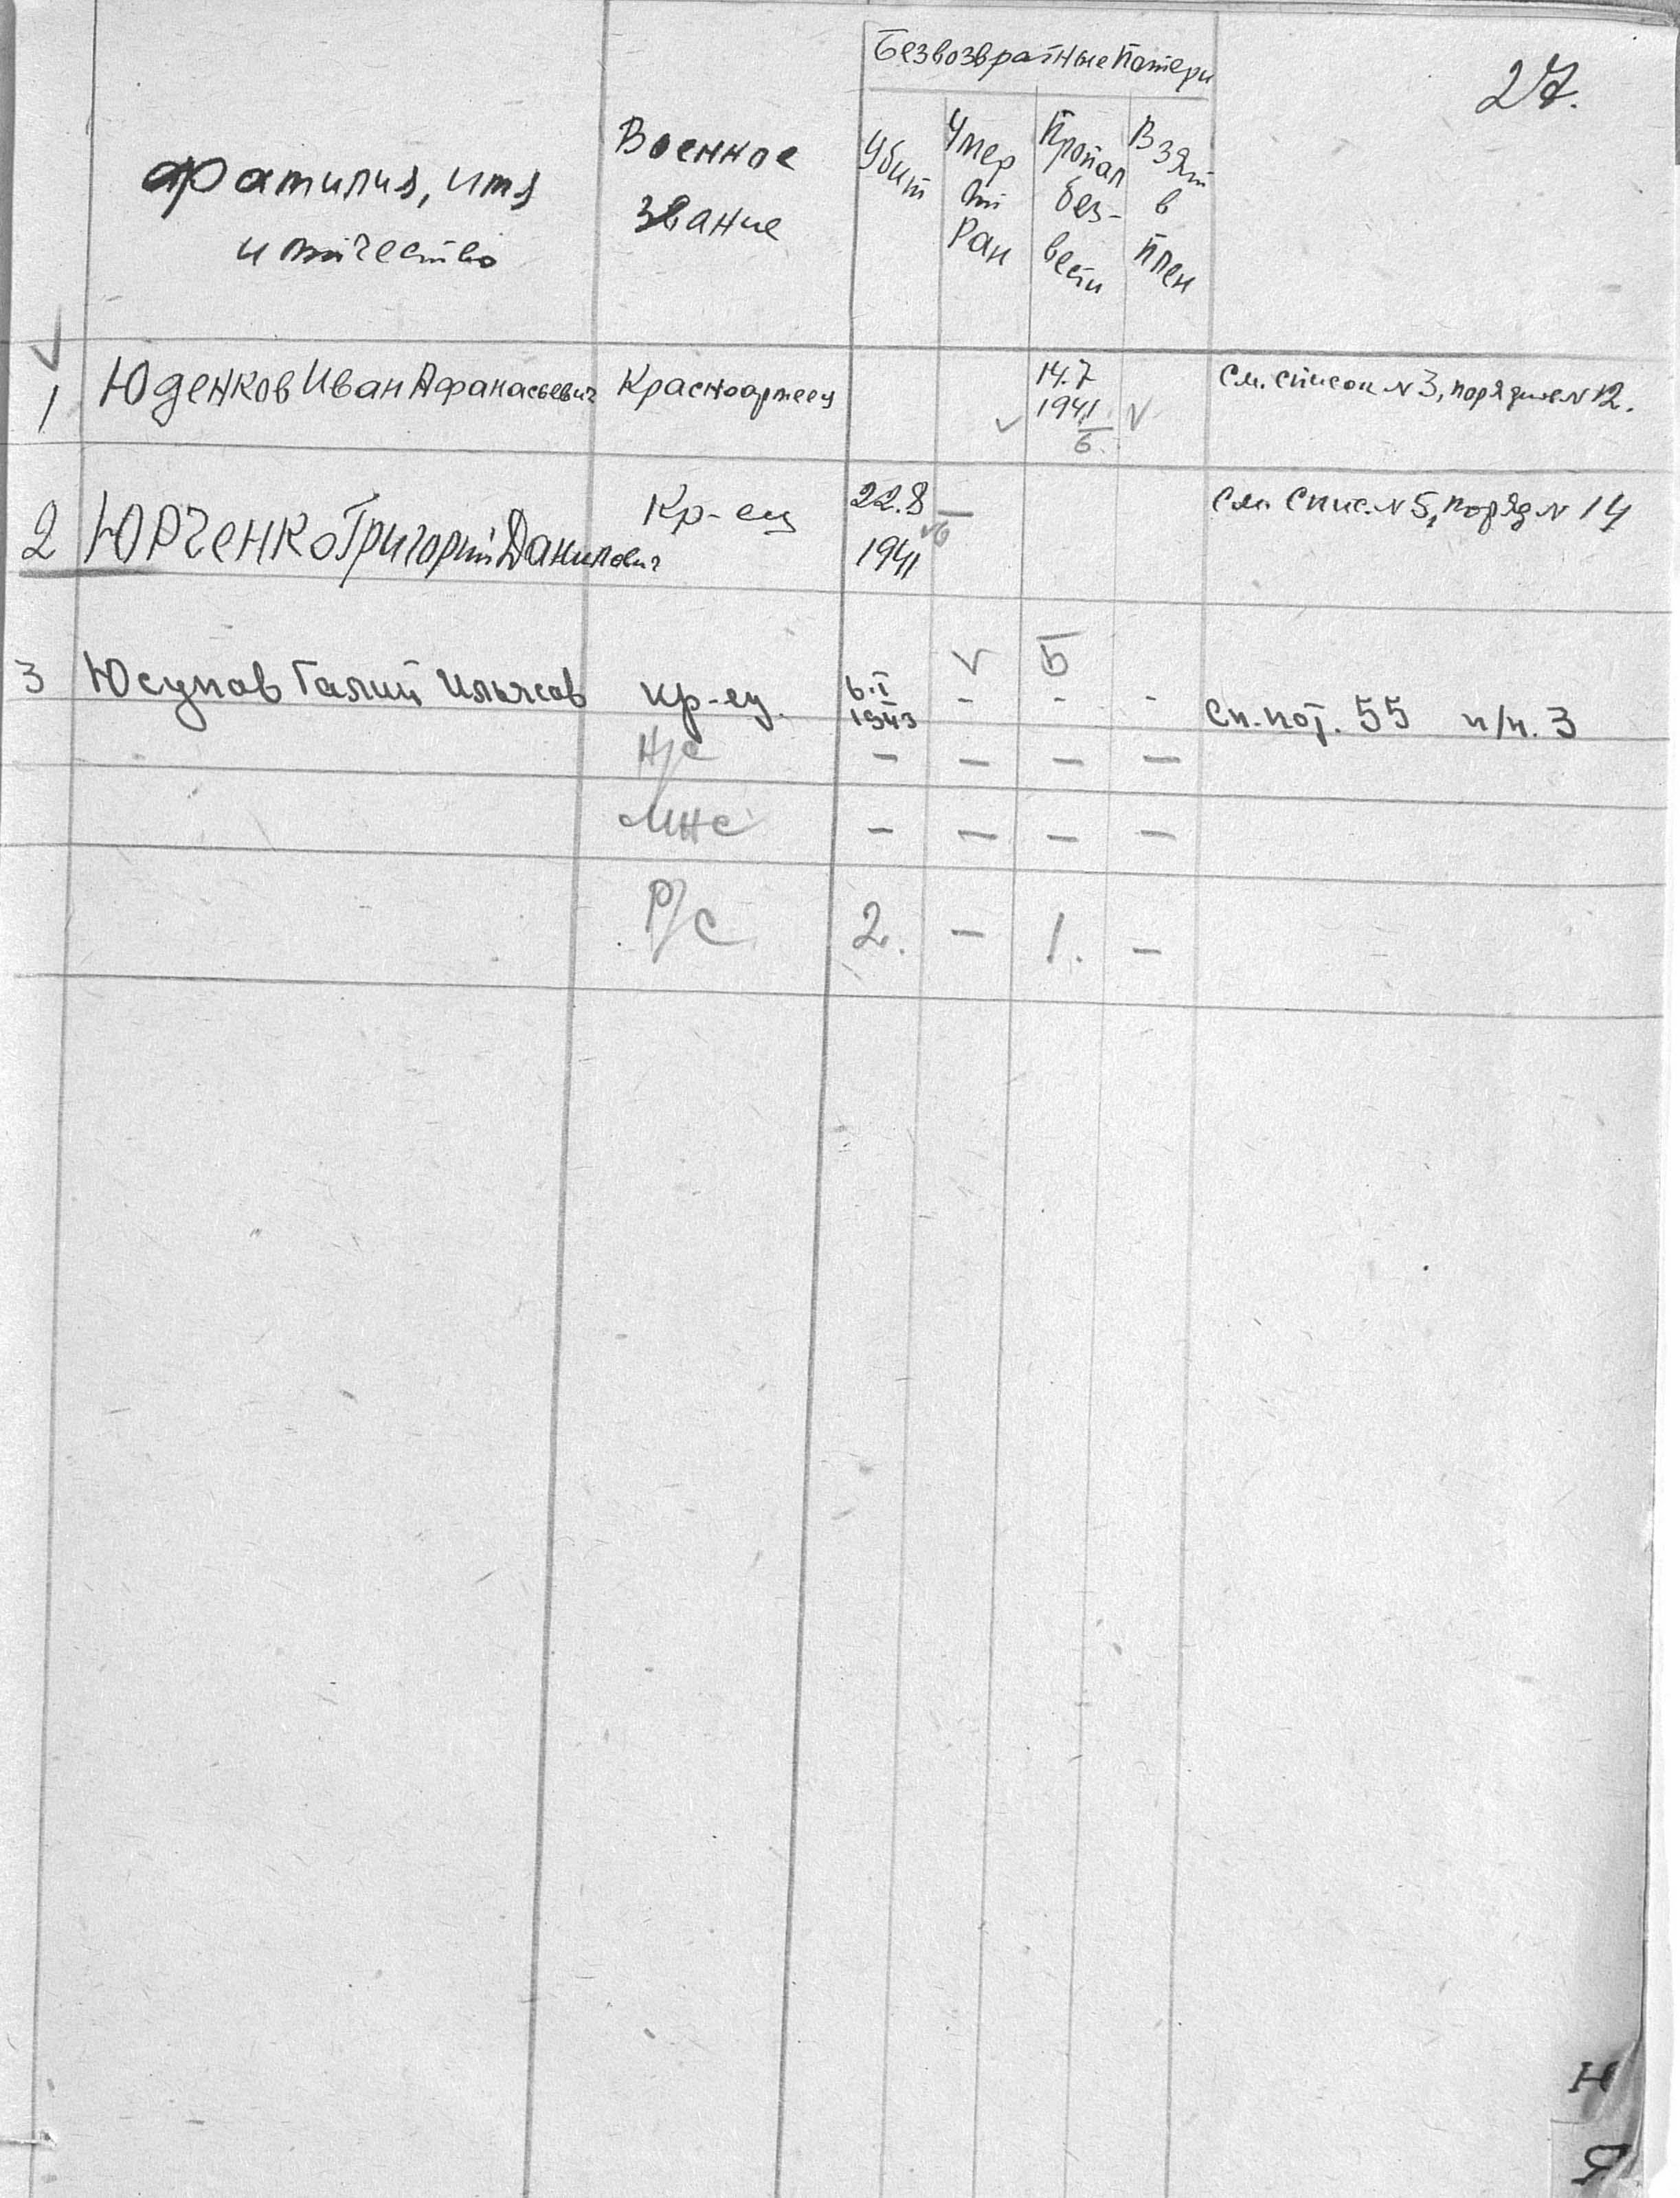 Безвозвратные потери
27.
Фамилия, имя
и отчество
Военное
звание
Убит
Умер
от
Ран
Пропал
без-
вести
Взят
в
плен
1 Юденков Иван Афанасьевич Красноармеец 14.7
1941
Б
См. список N 3, порядков N 12.
2 Юрченко Григорий Данилович Кр-ец 22.8 —
1941
См. Спис. N 5, поряд N 14
Б
3 Юсупов Галий Ильясов кр-ец. 6.I
1943
- - - Сп. пот. 55 п/н. 3
Н/С — — — —
МНС — — — —
Р/С 2. — 1. —
Н
Я